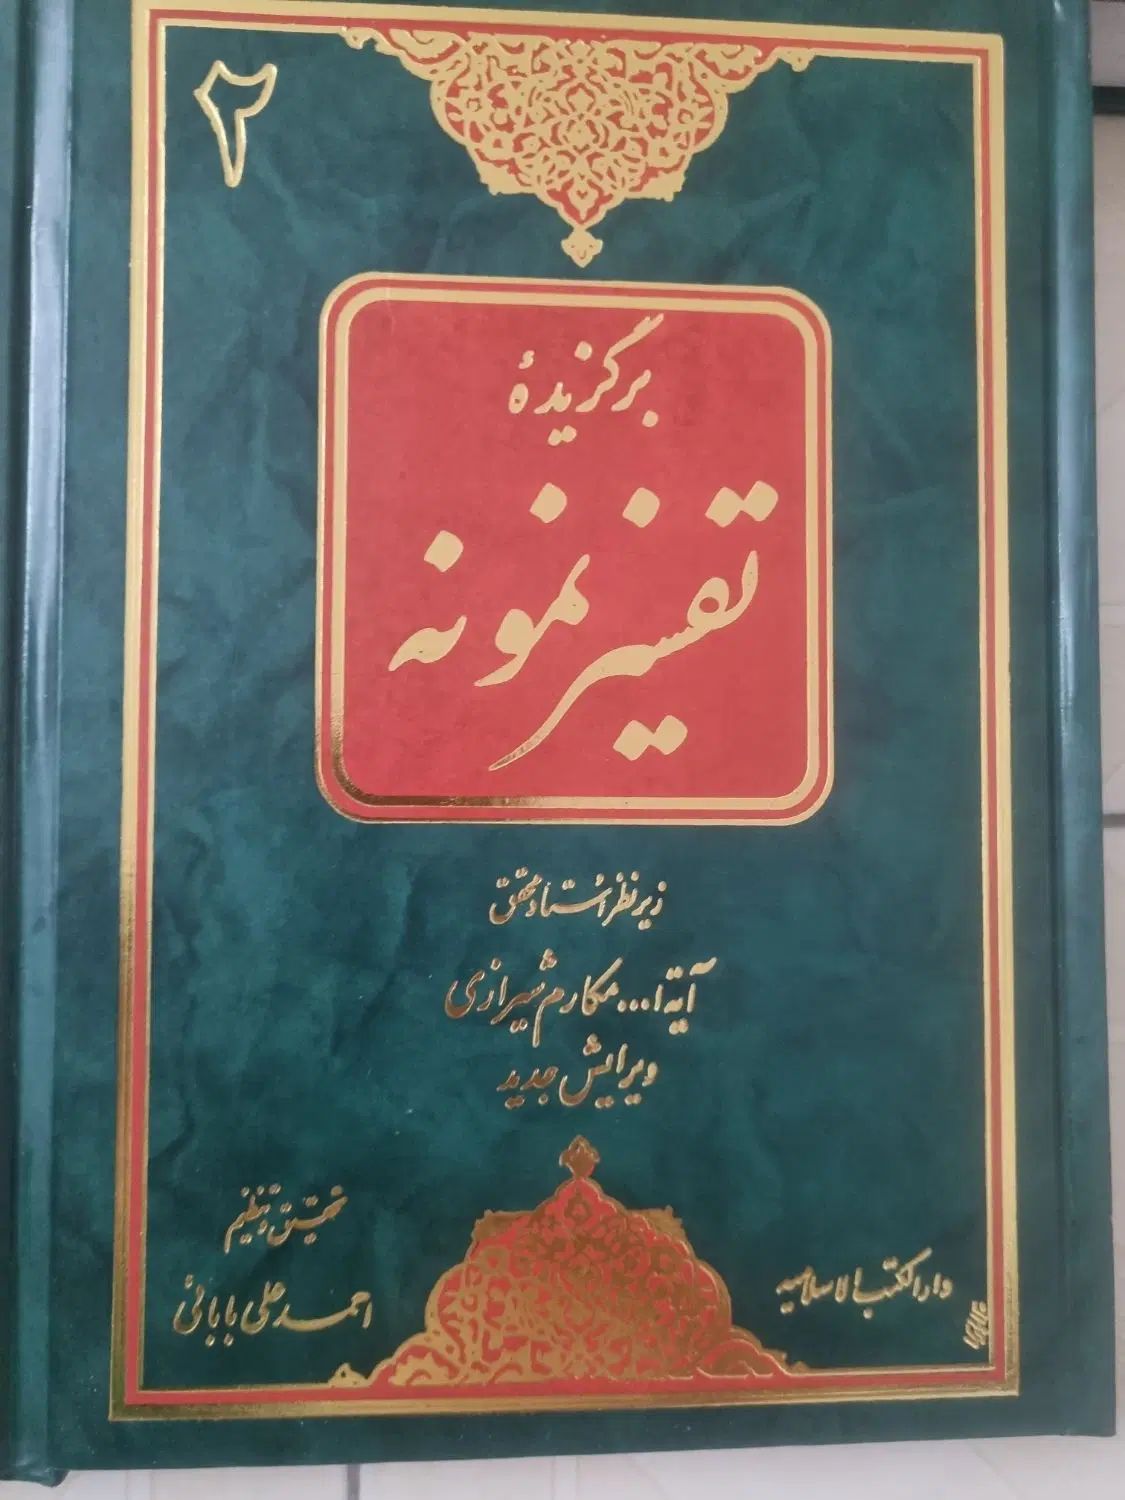 ۲
برگزیدهٔ
تفسیر نمونه
زیر نظر استاد محقق
آیة ا... مکارم شیرازی
ویرایش جدید
تحقیق و تنظیم
احمد علی بابائی
دارالکتب الاسلامیه